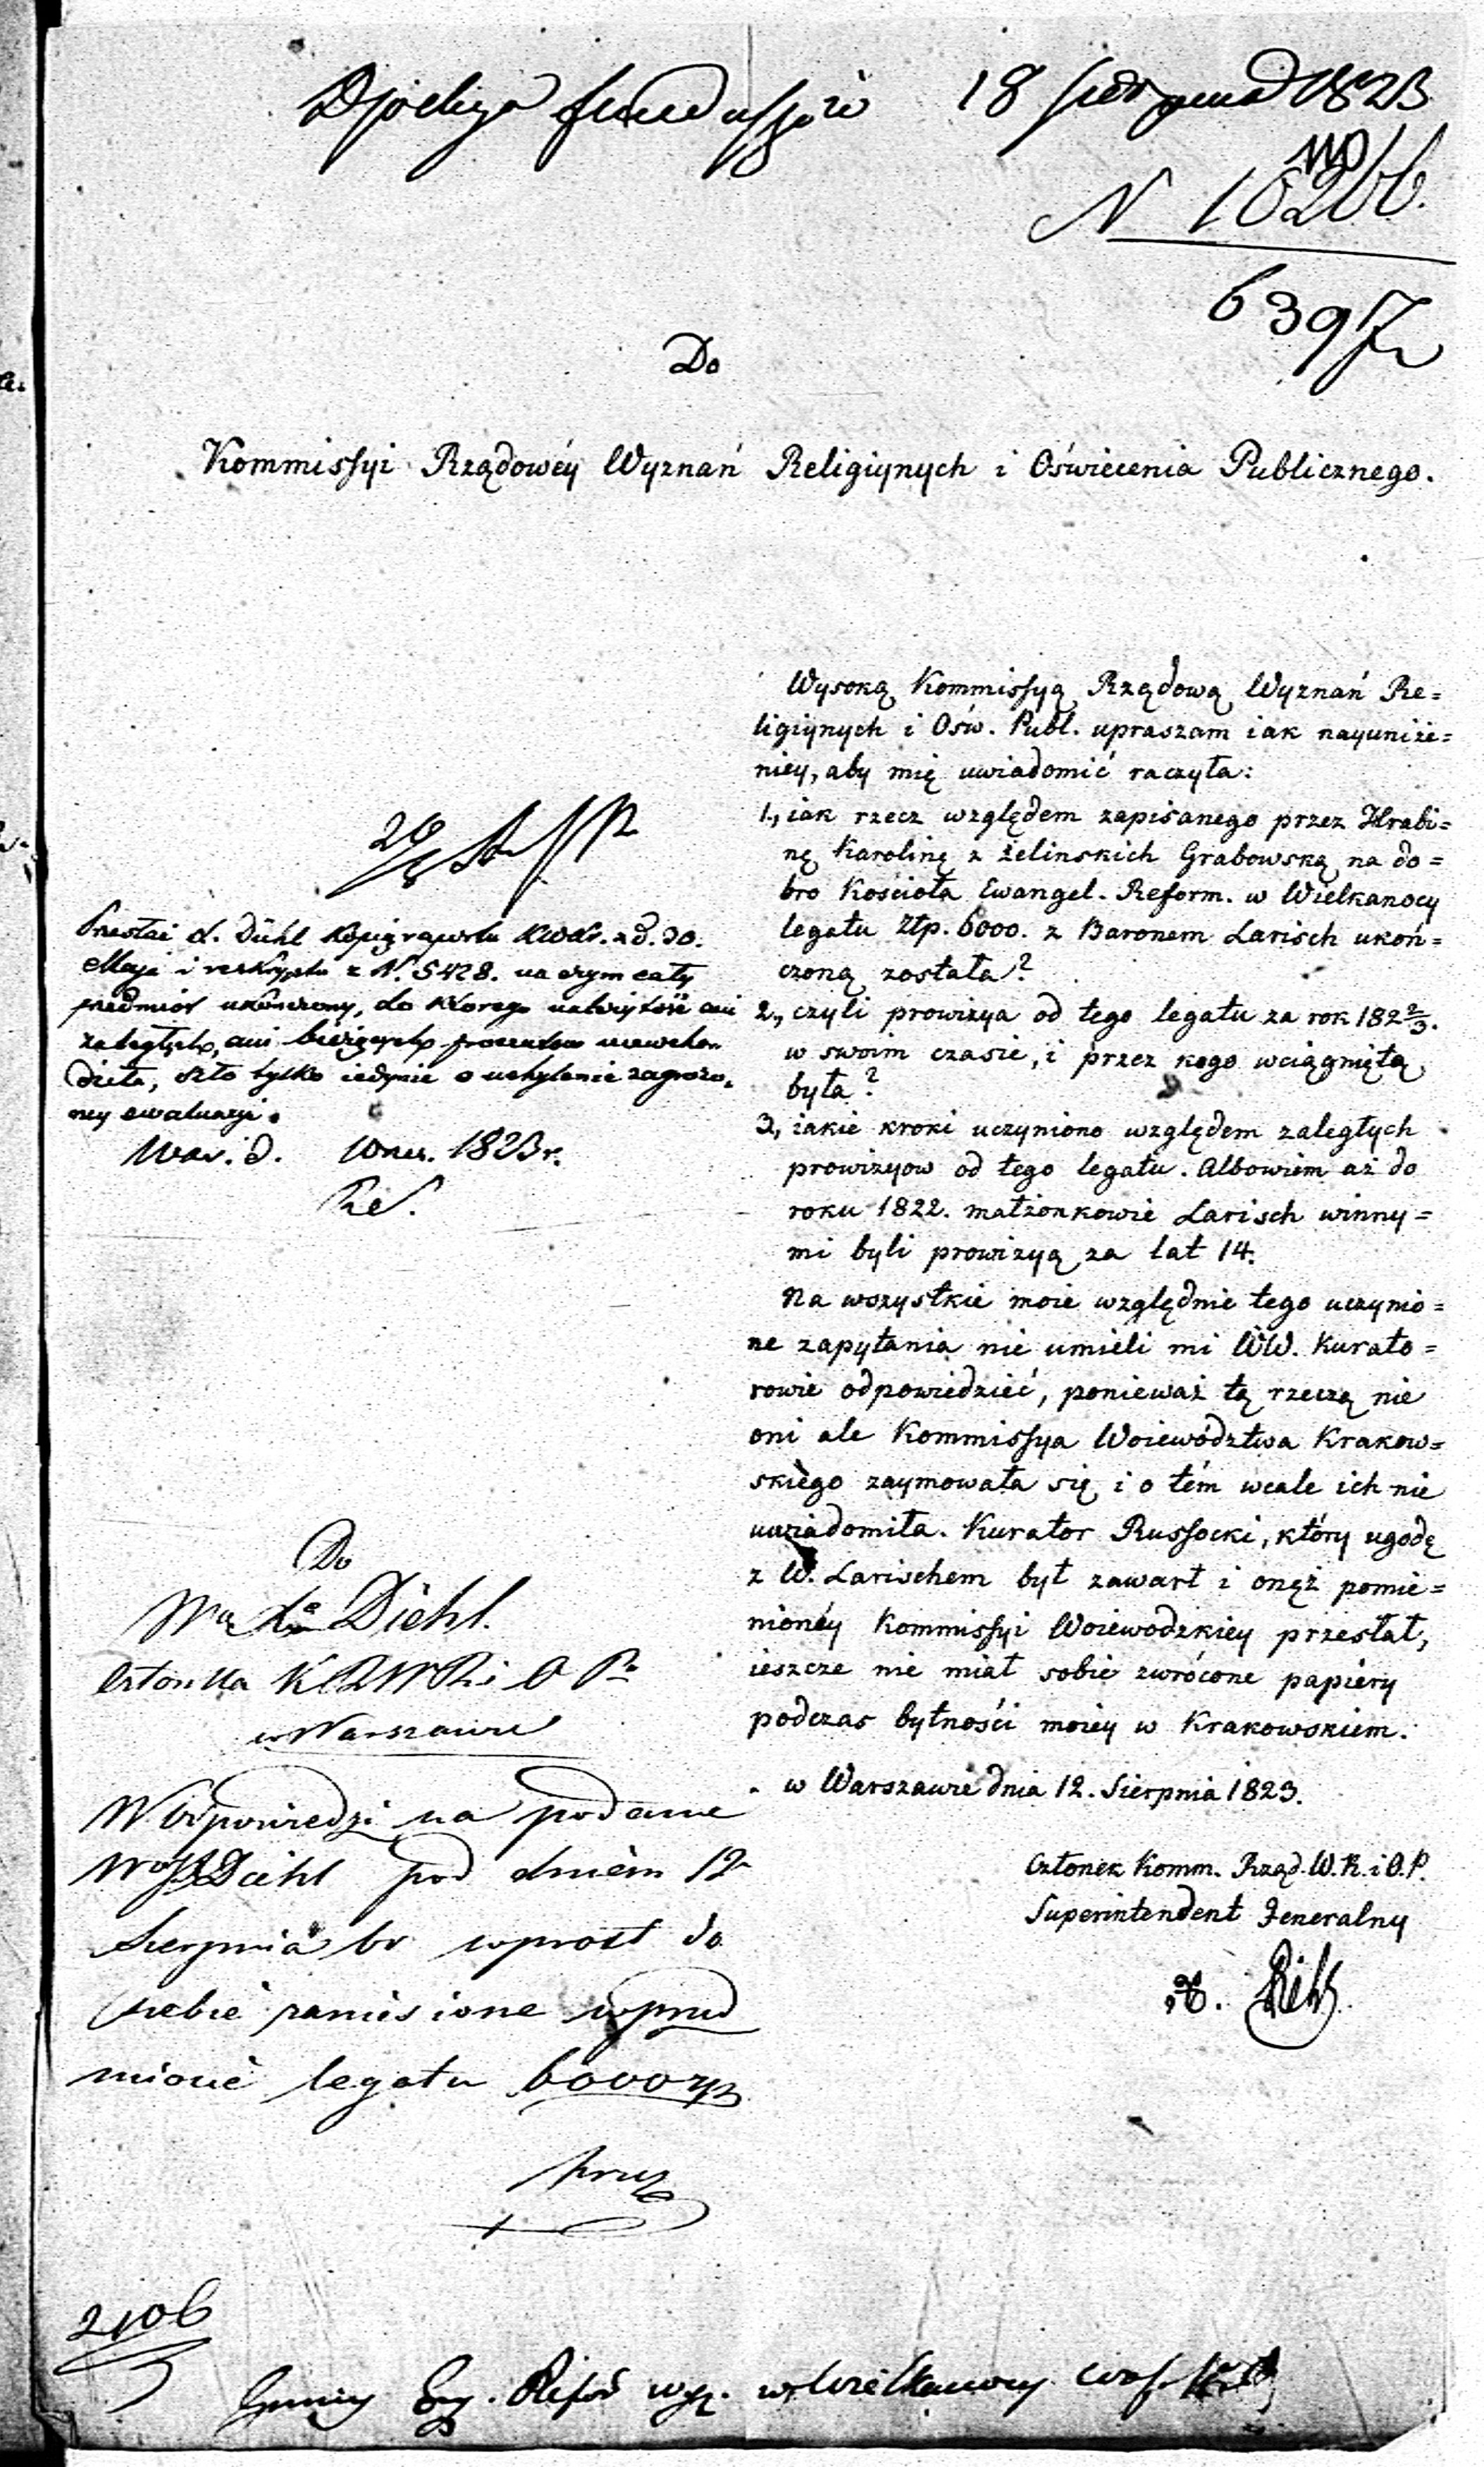 18 Sierpnia 1823
N 10266.
6397
Do
Kommissyi Rządowéy Wyznań Religiynych i Oświecenia Publicznego.
Wysoką Kommissyą Rządową Wyznań Re=
ligiynych i Ośw. Publ. upraszam iak nayuniże=
niey, aby mię uwiadomić raczyła:
1., iak rzecz względem zapisanego przez Hrabi=
nę Karolinę z Żelinskich Grabowską na do=
bro Kościoła Ewangel. Reform. w Wielkanocy
legatu Złp. 6000. z Baronem Larisch ukoń=
czoną została?
2., czyli prowizya od tego legatu za rok 182 2/3.
w swoim czasie, i przez kogo wciągniętą
była?
3, iakie kroki uczyniono względem zaległych
prowizyow od tego legatu. Albowiem aż do
roku 1822. małżonkowie Larisch winny=
mi byli prowizyą za lat 14.
Na wszystkie moie względnie tego uczynio=
ne zapytania nie umieli mi WW. Kurato=
rowie odpowiedzieć, ponieważ tą rzeczą nie
oni ale Kommissya Woiewództwa Krakow=
skiégo zaymowała się i o tém wcale ich nie
uwiadomiła. Kurator Russocki, który ugodę
z W. Larischem był zawarł i onęż pomie=
nionéy Kommissyi Woiewodzkiey przesłał,
ieszcze nie miał sobie zwrócone papiéry
podczas bytności moiey w Krakowskiem.
w Warszawie dnia 12. Sierpnia 1823.
Członek Komm. Rząd. W. R. i O. P.
Superintendent Jeneralny
Diehl.
d. Diehl Kopią z d. 30.
Maja i reskryptu z N. 5428. na czym cały
przedmiot ukończony, do którego
zaległych, ani bieżących procentow niewcho
dziła, szło tylko iedynie o uchylenie zagrożo,
ney ewaluacyi.
War. d. Wrześ. 1823 r.
Do
Diehl.
Członka K R W R i O P
w Warszawie
W odpowiedzi na podanie
Diehl pod dniem 12
Sierpnia br wprost do
siebie zaniesione w przed
miocie legatu 6000 zp
2106
Gminy Ewg. Refor wyz. w Wielkanocy